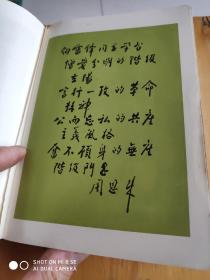 向雷锋同志学习
憎爱分明的阶级
立場
言行一致的革命
精神
公而忘私的共産
主義風格
奋不顾身的無産
階级鬥志
周恩来
SHOT ON MI 8 SE
AI DUAL CAMERA